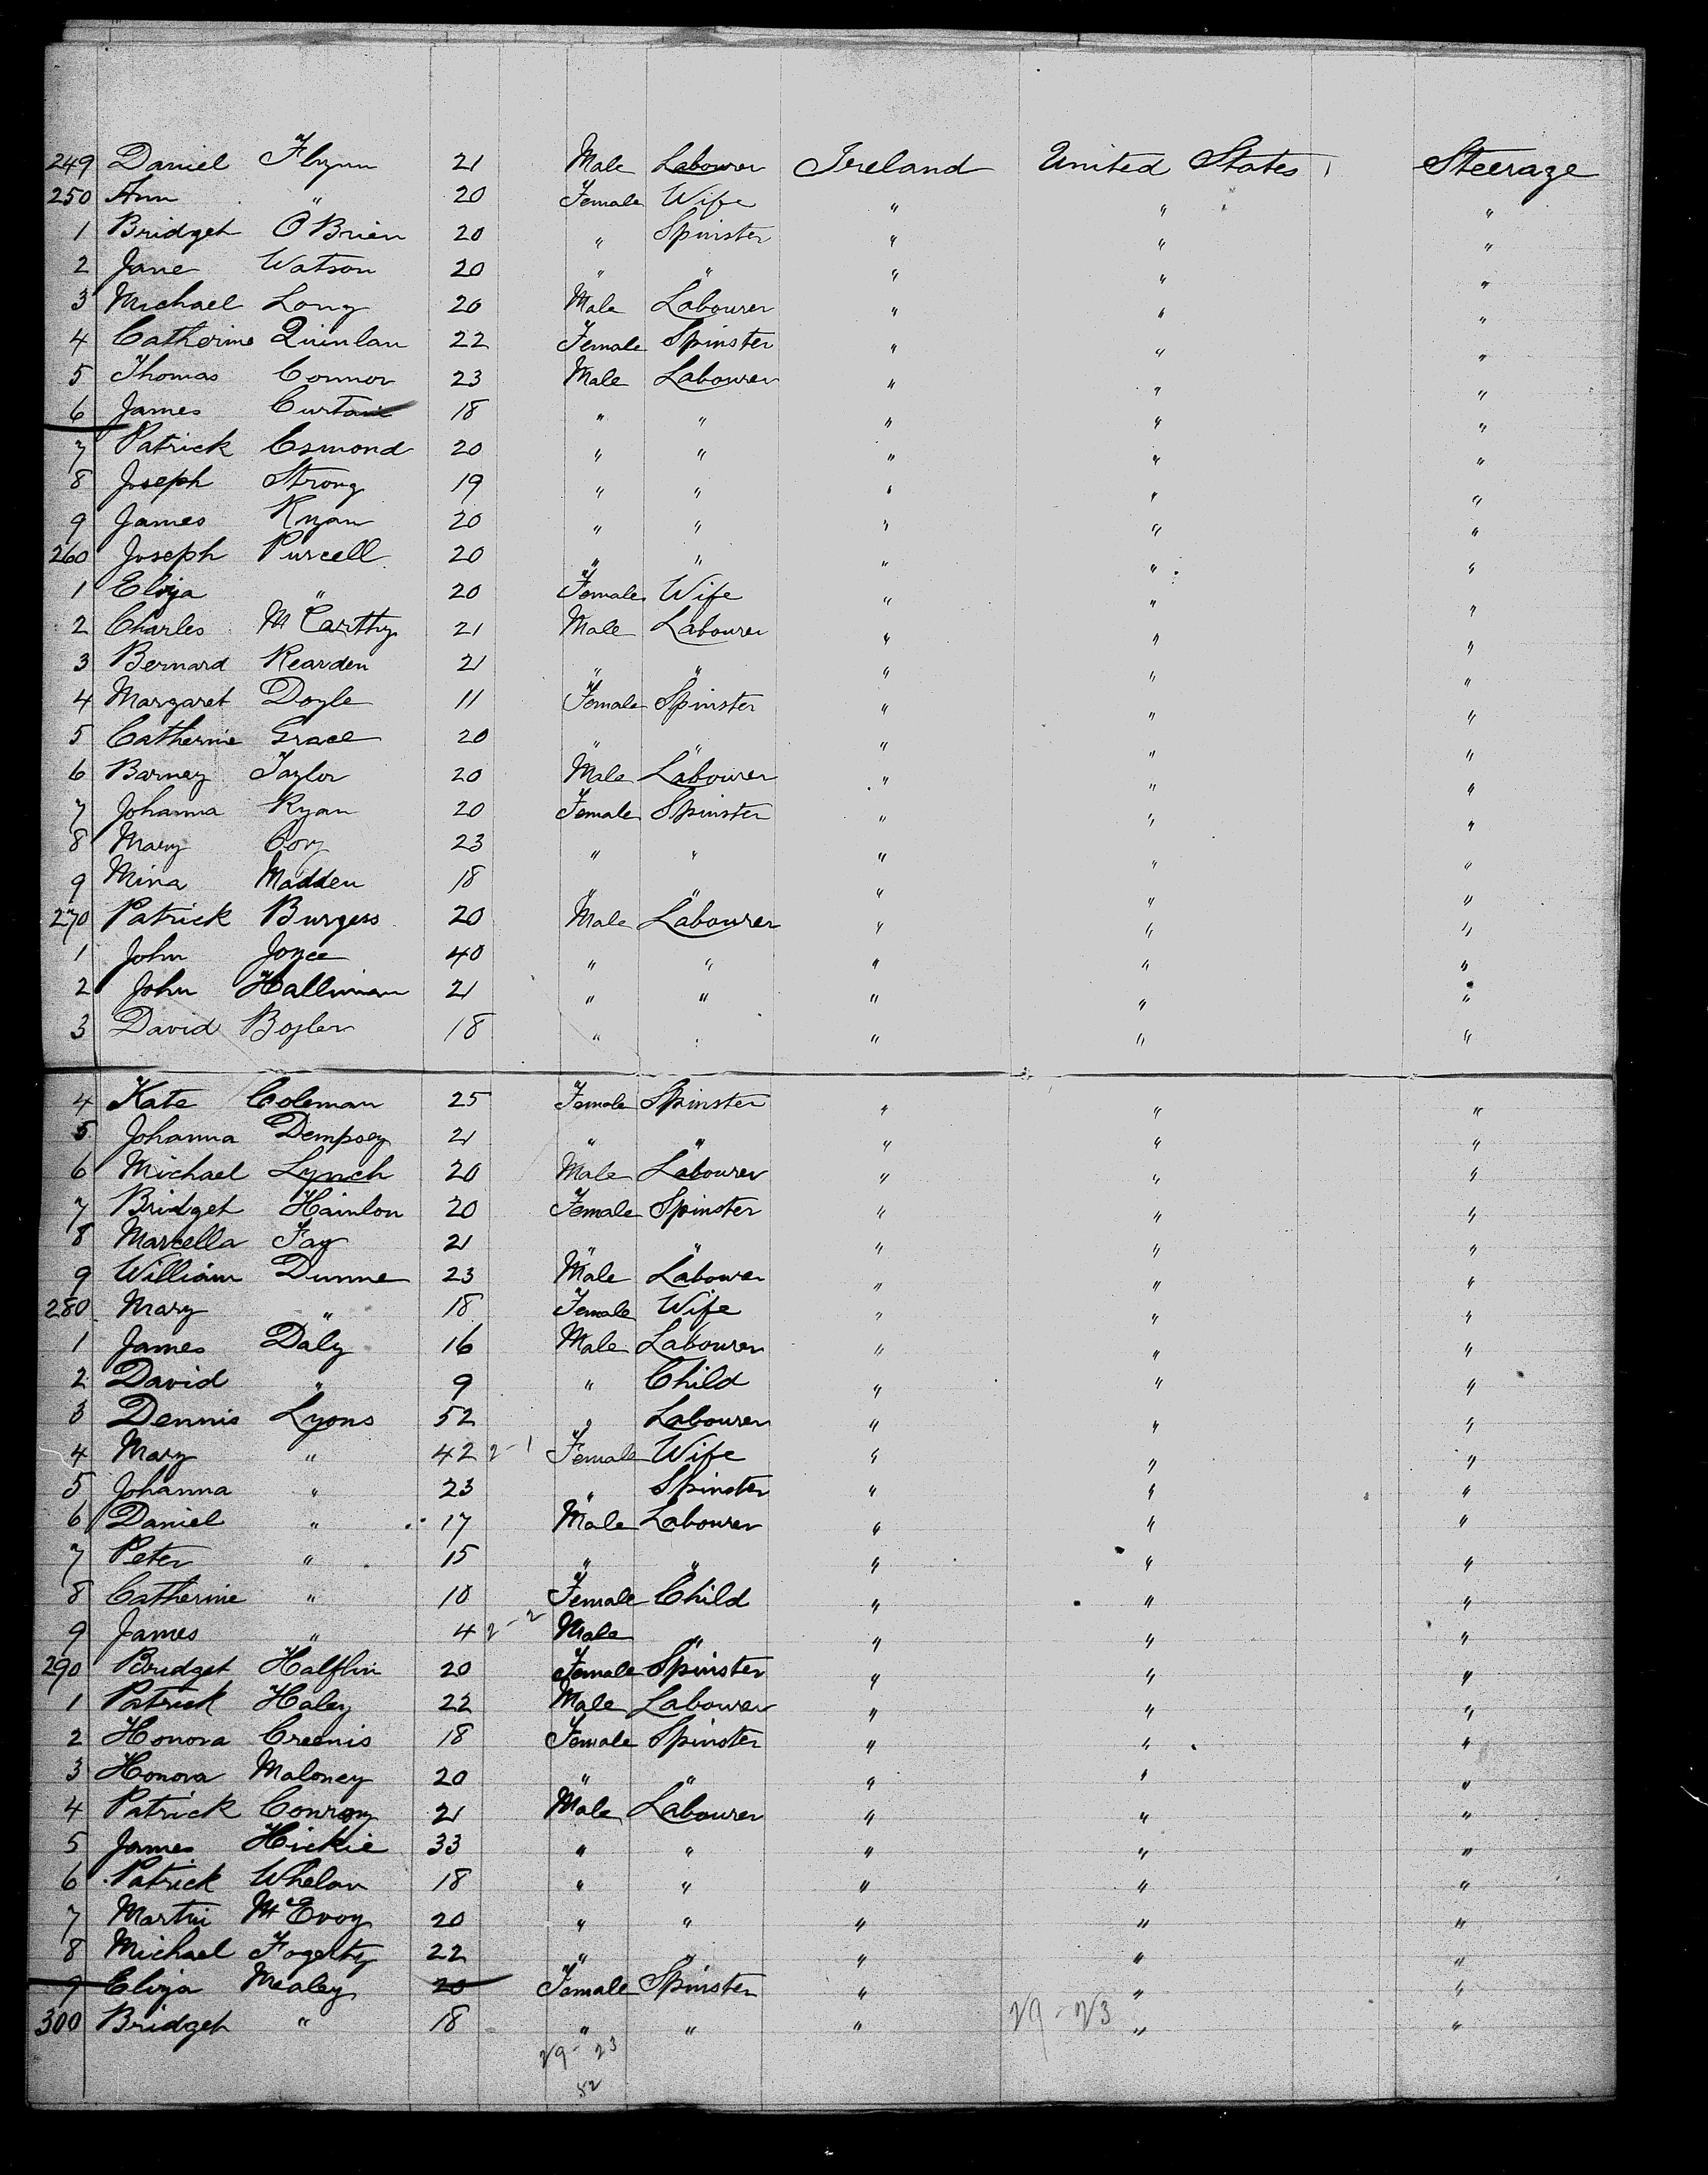 249 Daniel Flynn 21 Male Labourer Ireland United States Steerage
250 Ann " 20 Female Wife " " "
1 Bridget O'Brien 20 " Spinster " " "
2 Jane Watson 20 " " " " "
3 Michael Long 20 Male Labourer " " "
4 Catherine Quinlan 22 Female Spinster " " "
5 Thomas Connor 23 Male Labourer " " "
6 James Curtain 18 " " " " "
7 Patrick Esmond 20 " " " " "
8 Joseph Strong 19 " " " " "
9 James Ryan 20 " " " " "
260 Joseph Purcell 20 " " " " "
1 Eliza " 20 Female Wife " " "
2 Charles McCarthy 21 Male Labourer " " "
3 Bernard Rearden 21 " " " " "
4 Margaret Doyle 11 Female Spinster " " "
5 Catherine Grace 20 " " " " "
6 Barney Taylor 20 Male Labourer " " "
7 Johanna Ryan 20 Female Spinster " " "
8 Mary Cory 23 " " " " "
9 Mina Madden 18 " " " " "
270 Patrick Burgess 20 Male Labourer " " "
1 John Joyce 40 " " " " "
2 John Hallinan 21 " " " " "
3 David 18 " " " " "
4 Kate Coleman 25 Female Spinster " " "
5 Johanna Dempsey 21 " " " " "
6 Michael Lynch 20 Male Labourer " " "
7 Bridget Hainlon 20 Female Spinster " " "
8 Marcella Fay 21 " " " " "
9 William Dunne 23 Male Labourer " " "
280 Mary " 18 Female Wife " " "
1 James Daly 16 Male Labourer " " "
2 David " 9 " Child " " "
3 Dennis Lyons 52 " Labourer " " "
4 Mary " 42 2-1 Female Wife " " "
5 Johanna " 23 " Spinster " " "
6 Daniel " 17 Male Labourer " " "
7 Peter " 15 " " " " "
8 Catherine " 10 Female Child " " "
9 James " 4 2-2 Male " " " "
290 Bridget Halflin 20 Female Spinster " " "
1 Patrick Haley 22 Male Labourer " " "
2 Honora Creenis 18 Female Spinster " " "
3 Honora Maloney 20 " " " " "
4 Patrick Conroy 21 Male Labourer " " "
5 James Hickie 33 " " " " "
6 Patrick Whelan 18 " " " " "
7 Martin McEvoy 20 " " " " "
8 Michael Fogerty 22 " " " " "
9 Eliza Mealey 20 Female Spinster " " "
300 Bridget " 18 " " " 29-23 " "
29-23
52